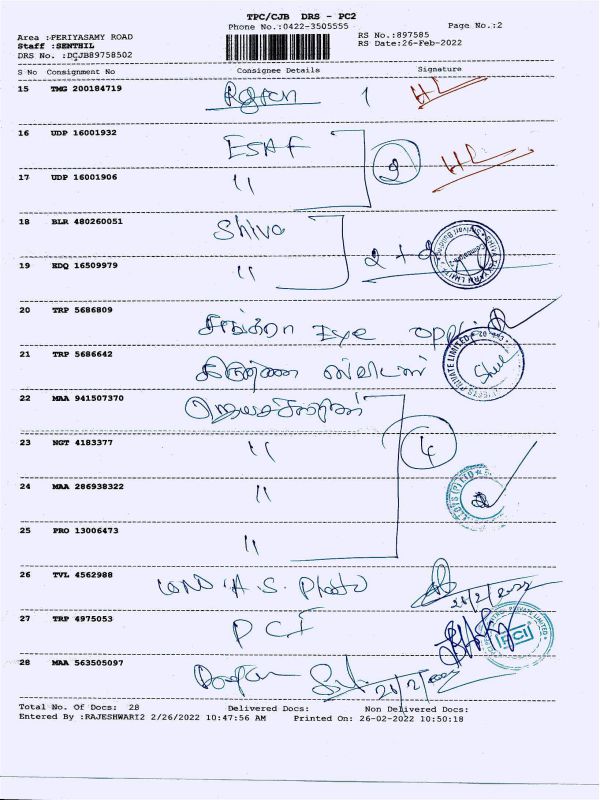 TPC/CJB DRS - PC2
Phone No.:0422-3505555 Page No.:2
Area :PERIYASAMY ROAD RS No.:897585
Staff :SENTHIL RS Date:26-Feb-2022
DRS No. :DCJB89758502
S No Consignment No Consignee Details Signature
15 TMG 200184719 1
16 UDP 16001932 ESAF 2
17 UDP 16001906 "
18 BLR 480260051 Shiva
19 HDQ 16509979 " 2+2
20 TRP 5686809 Eye
21 TRP 5686642
22 MAA 941507370
23 NGT 4183377 " 4
24 MAA 286938322 "
25 PRO 13006473 "
26 TVL 4562988 A.S. Photo 26/2/2022
27 TRP 4975053 PCI
PCI
28 MAA 563505097 26/2/2022
Total No. Of Docs: 28 Delivered Docs: Non Delivered Docs:
Entered By :RAJESHWARI2 2/26/2022 10:47:56 AM Printed On: 26-02-2022 10:50:18